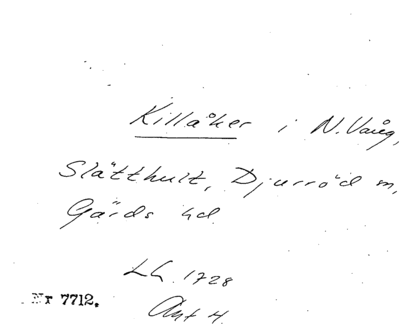 Killåker i N. Vång,
Slätthult, Djurröd sn,
Gärds hd
LH. 1728
Nr 7712.
Akt 4.